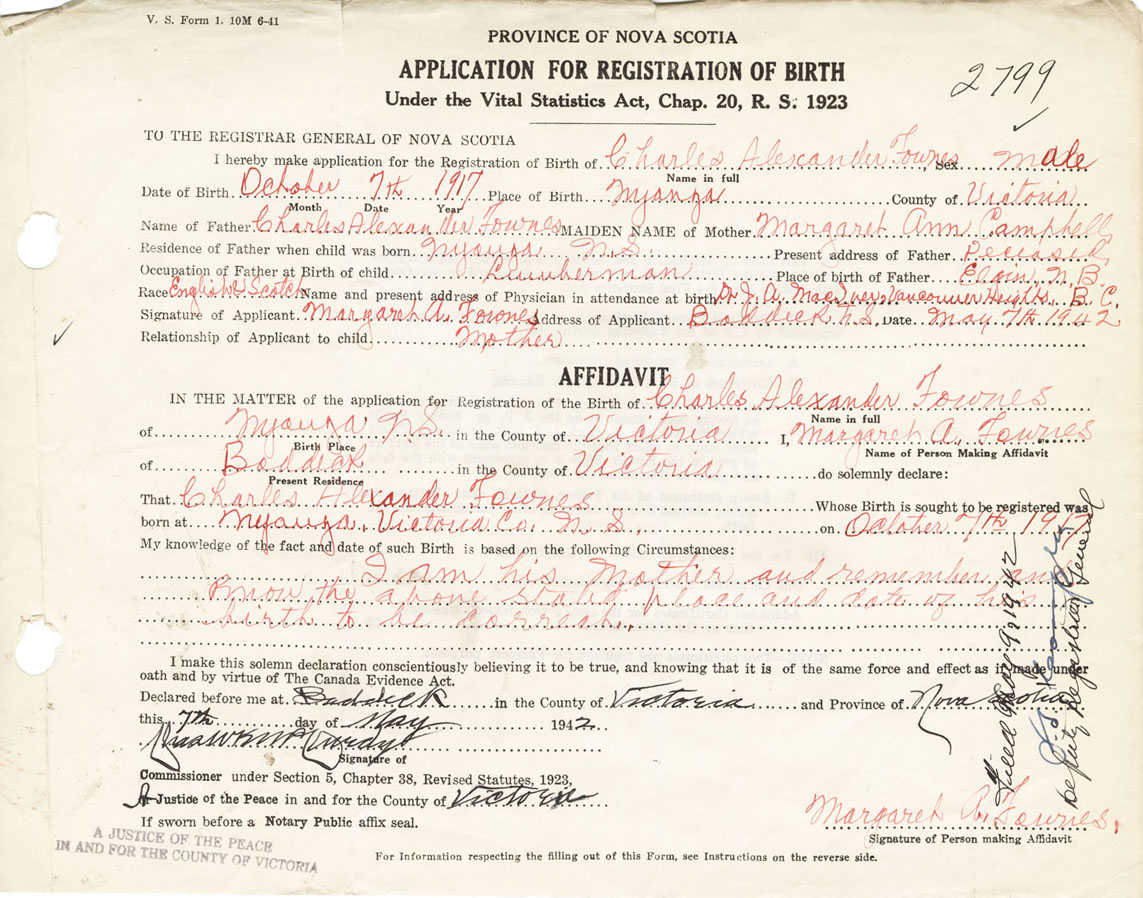 V. S. Form 1. 10M 6-41
PROVINCE OF NOVA SCOTIA
APPLICATION FOR REGISTRATION OF BIRTH
2799
Under the Vital Statistics Act, Chap. 20, R. S. 1923
TO THE REGISTRAR GENERAL OF NOVA SCOTIA
I hereby make application for the Registration of Birth of Charles Alexander Fownes, Sex Male
Name in full
Date of Birth October 7th 1917 Place of Birth Nyanza County of Victoria
Month Date Year
Name of Father Charles Alexander Fownes MAIDEN NAME of Mother Margaret Ann Campbell
Residence of Father when child was born Nyanza N.S. Present address of Father Deceased
Occupation of Father at Birth of child Lumberman Place of birth of Father Elgin, N.B.
Race English & Scotch Name and present address of Physician in attendance at birth Dr. J. A. Vancouver Heights B.C.
Signature of Applicant Margaret A. Fownes Address of Applicant Baddeck N.S. Date May 7th 1942
Relationship of Applicant to child Mother
AFFIDAVIT
IN THE MATTER of the application for Registration of the Birth of Charles Alexander Fownes
Name in full
of Nyanza N.S. in the County of Victoria I, Margaret A. Fownes
Birth Place Name of Person Making Affidavit
of Baddeck in the County of Victoria do solemnly declare:
Present Residence
That Charles Alexander Fownes Whose Birth is sought to be registered was
born at Nyanza, Victoria Co. N.S. on October 7th 1917
My knowledge of the fact and date of such Birth is based on the following Circumstances:
I am his Mother and remember and
know the above stated place and date of his
birth to be correct.
I make this solemn declaration conscientiously believing it to be true, and knowing that it is of the same force and effect as if made under
oath and by virtue of The Canada Evidence Act.
Declared before me at Baddeck in the County of Victoria and Province of Nova Scotia
this 7th day of May 1942
Signature of
Commissioner under Section 5, Chapter 38, Revised Statutes, 1923,
A Justice of the Peace in and for the County of Victoria
If sworn before a Notary Public affix seal.
Margaret A. Fownes.
Signature of Person making Affidavit
A JUSTICE OF THE PEACE
IN AND FOR THE COUNTY OF VICTORIA
For Information respecting the filling out of this Form, see Instructions on the reverse side.
Filed May 9, 1942
Deputy Registrar General